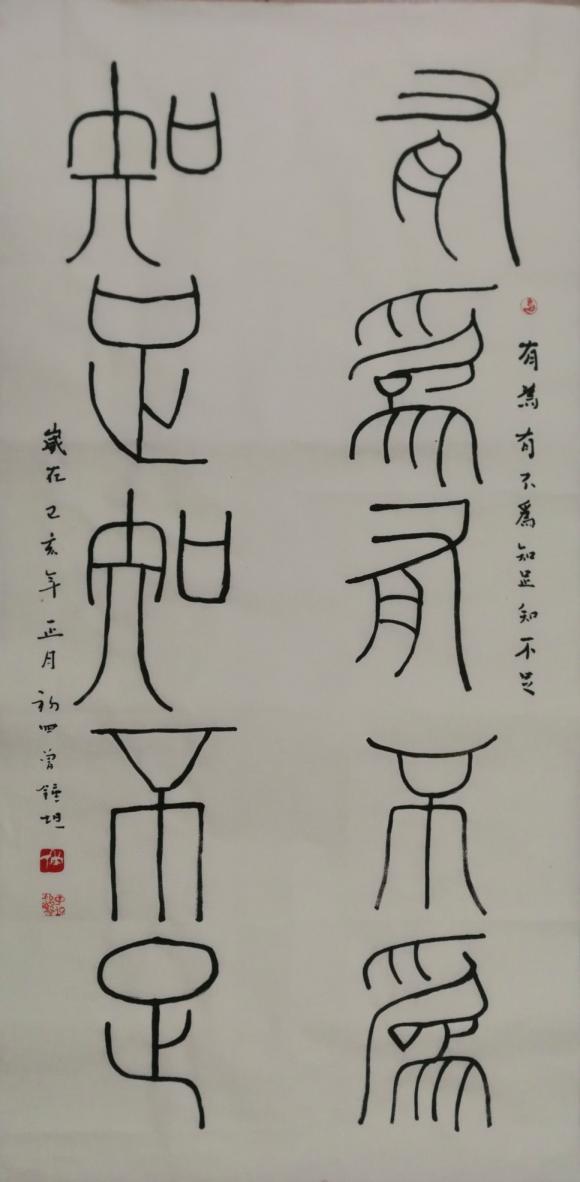 有為有不為
知足知不足
有為有不為知足知不足
歲在己亥年正月初四曾鐘坦